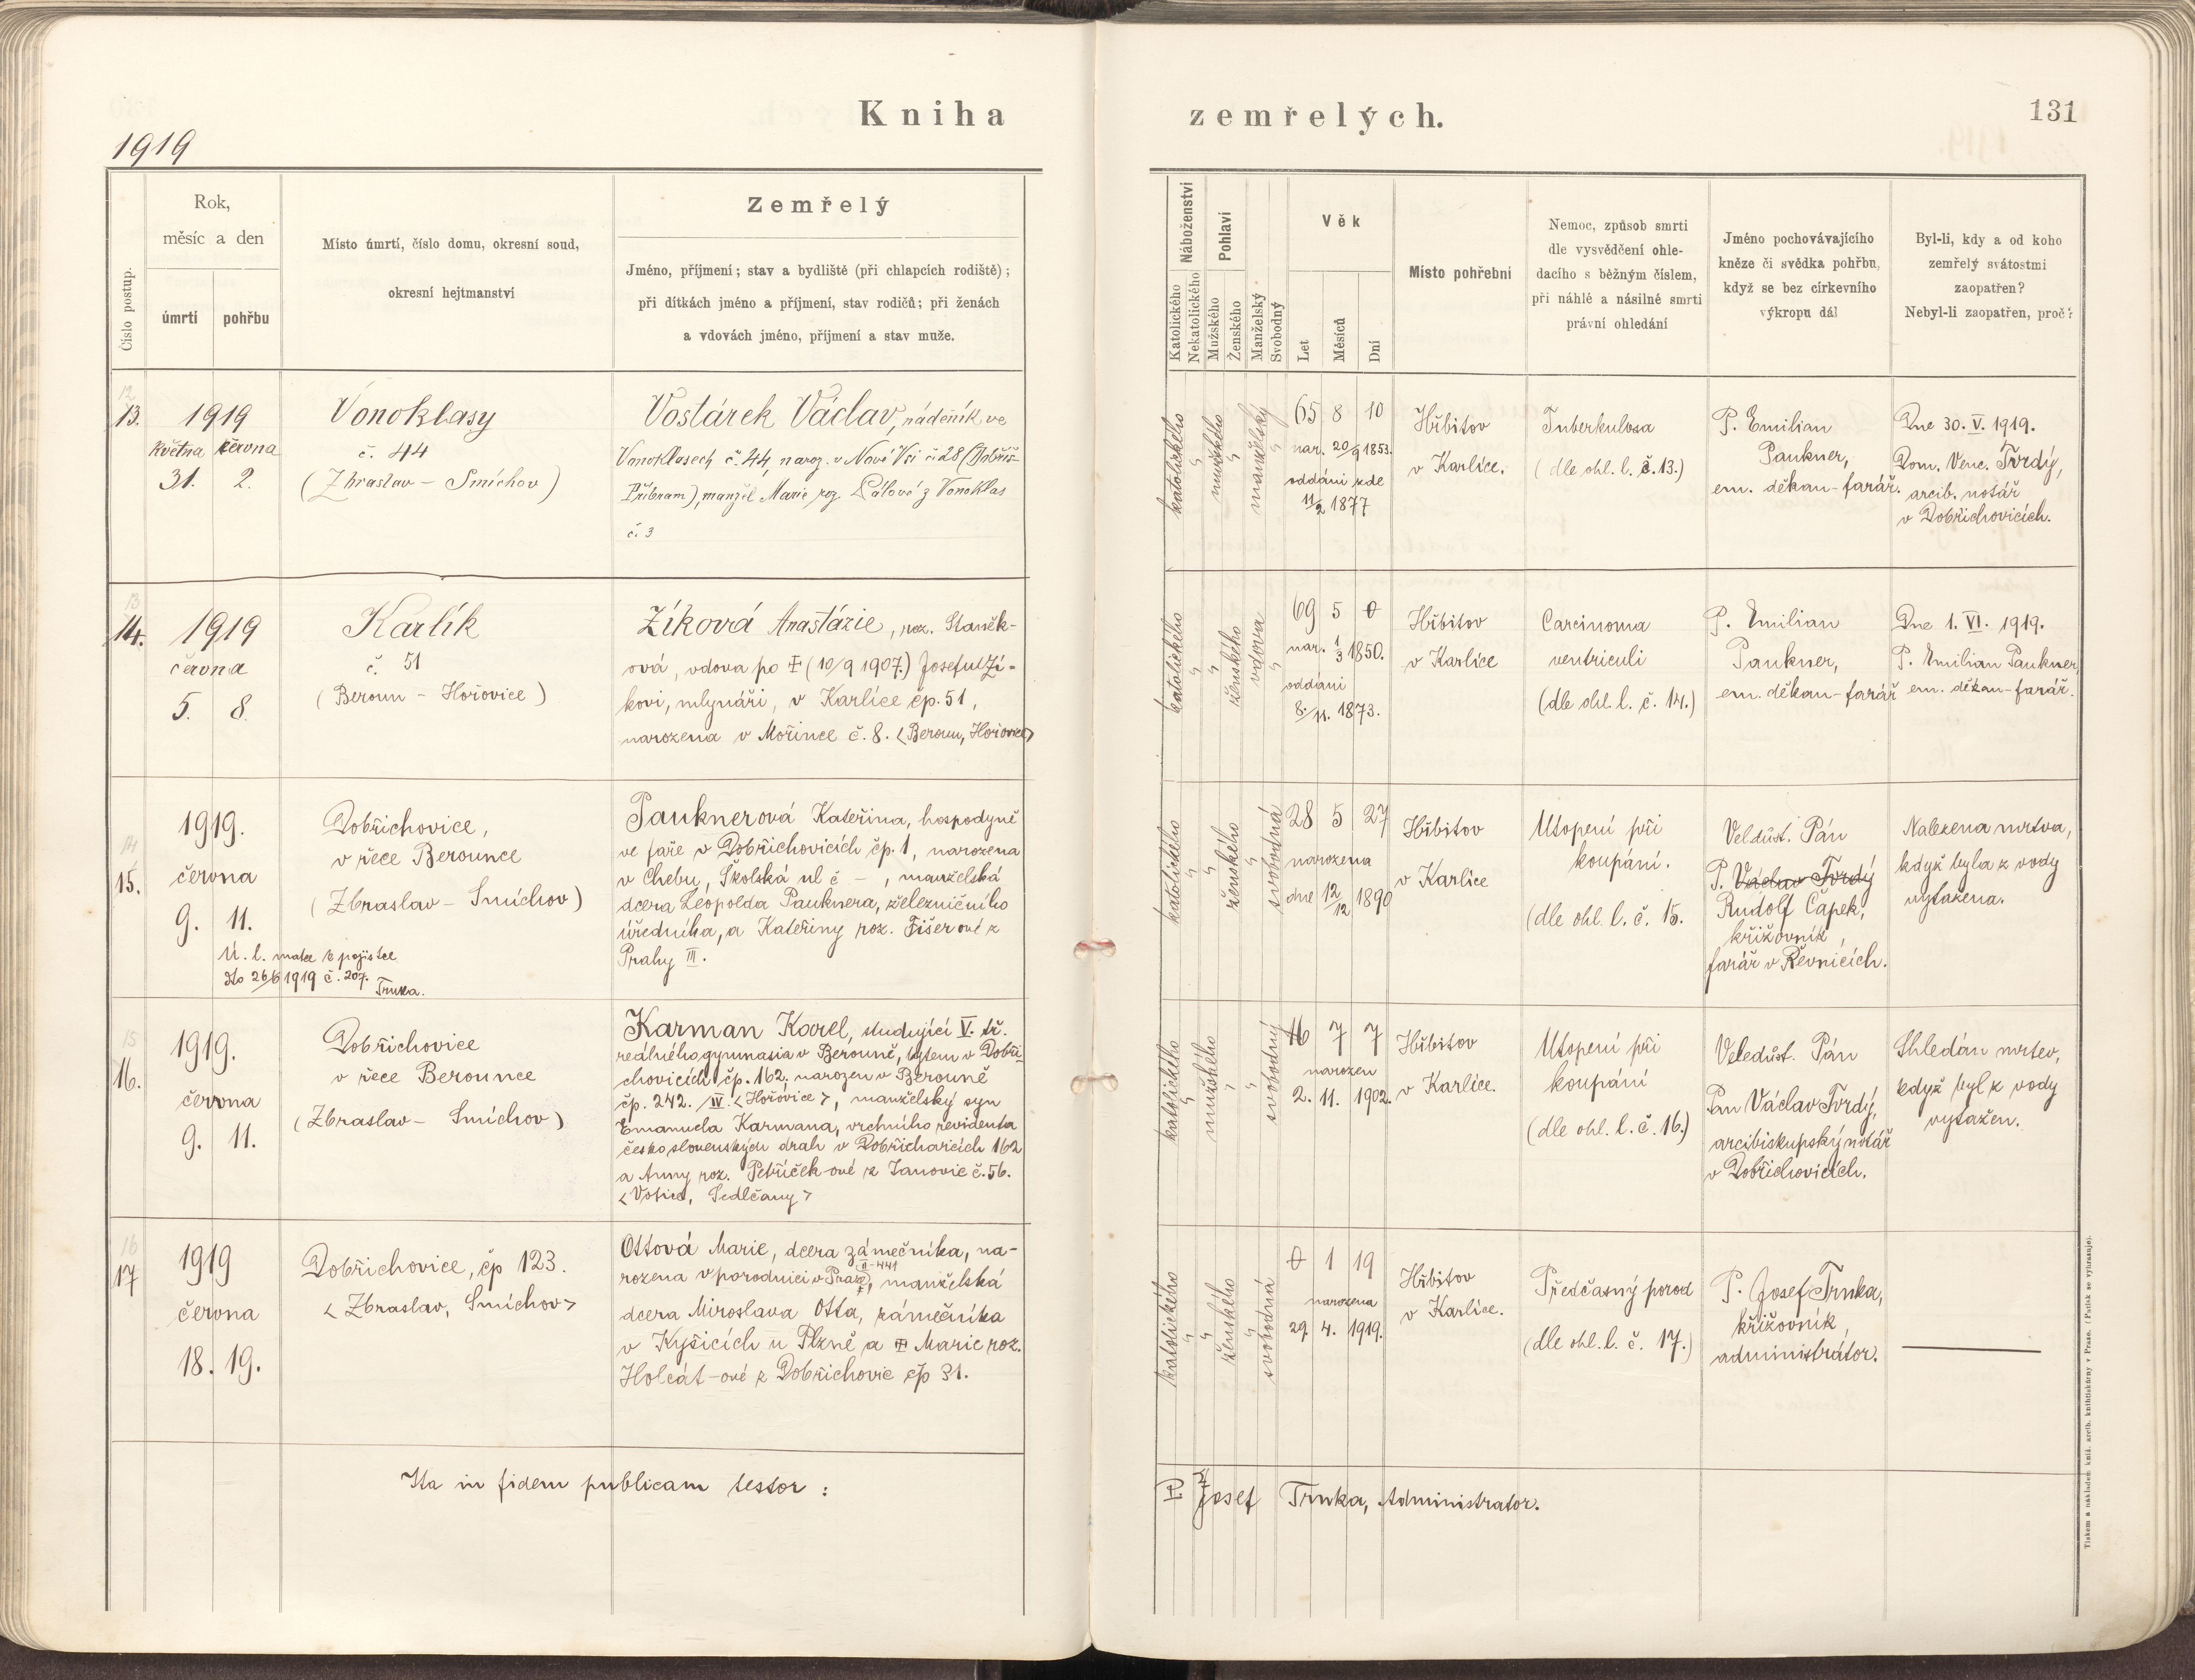 Kniha zemřelých.
131
1919
Číslo postup.
Rok,
měsíc a den
úmrtí
pohřbu
Místo úmrtí, číslo domu, okresní soud,
okresní hejtmanství
Zemřelý
Jméno, příjmení; stav a bydliště (při chlapcích rodiště);
při dítkách jméno a příjmení, stav rodičů; při ženách
a vdovách jméno, příjmení a stav muže.
Náboženství
Katolického
Nekatolického
Pohlaví
Mužského
Ženského
Manželský
Svobodný
Věk
Let
Měsíců
Dní
Místo pohřební
Nemoc, způsob smrti
dle vysvědčení ohle-
dacího s běžným číslem,
při náhlé a násilné smrti
právní ohledání
Jméno pochovávajícího
kněze či svědka pohřbu,
když se bez církevního
výkropu dál
Byl-li, kdy a od koho
zemřelý svátostmi
zaopatřen?
Nebyl-li zaopatřen, proč?
12
13.
1919
května června
31. 2.
Vonoklasy
č. 44
(Zbraslav – Smíchov)
Vostárek Václav, nádeník ve
Vonoklasech č. 44, naroz. v Nové Vsi č. 28 (Dobříš-
Příbram), manžel Marie roz. Pálové z Vonoklas
č. 3
katolického
"
mužského
"
manželský
"
65 8 10
nar. 20/9 1853.
oddáni zde
11/2 1877
Hřbitov
v Karlíce.
Tuberkulosa
(dle ohl. l. č. 13.)
P. Emilian
Paukner,
em. děkan-farář.
Dne 30. V. 1919.
Dom. Venc. Tvrdý,
arcib. notář
v Dobřichovicích.
13
14.
1919
června
5. 8.
Karlík
č. 51
(Beroun – Hořovice)
Zíková Anastázie, roz. Staněk-
ová, vdova po † (10/9 1907.) Josefu Zí-
kovi, mlynáři, v Karlíce čp. 51,
narozena v Mořince č. 8. <Beroun, Hořovice>
katolického
"
"
ženského
vdova
"
69 5 0
nar. 1/3 1850.
oddáni
8./11. 1873.
Hřbitov
v Karlíce
Carcinoma
ventriculi
(dle ohl. l. č. 14.)
P. Emilian
Paukner,
em. děkan-farář
Dne 1. VI. 1919.
P. Emilian Paukner,
em. děkan-farář.
14
15.
1919.
června
9. 11.
Ú. l. matce k pojistce
dto 26/6 1919 č. 207.
Trnka.
Dobřichovice,
v řece Berounce
(Zbraslav – Smíchov)
Pauknerová Kateřina, hospodyně
ve faře v Dobřichovicích čp. 1, narozena
v Chebu, Školská ul č – , manželská
dcera Leopolda Pauknera, železničního
úředníka, a Kateřiny roz. Fišerové z
Prahy III.
katolického
"
"
ženského
"
svobodná
28 5 27
narozena
dne 12/12 1890
Hřbitov
v Karlíce
Utopení při
koupání.
(dle ohl. l. č. 15.
Veldůst. Pán
P. Václav Tvrdý
Rudolf Čapek,
křižovník,
farář v Řevnicích.
Nalezena mrtva,
když byla z vody
vytažena.
15
16.
1919.
června
9. 11.
Dobřichovice
v řece Berounce
(Zbraslav – Smíchov)
Karman Karel, studující V. tř.
reálného gymnasia v Berouně, bytem v Dobři-
chovicích čp. 162, narozen v Berouně
čp. 242. /IV. <Hořovice>, manželský syn
Emanuela Karmana, vrchního revidenta
československých drah v Dobřichovicích 162
a Anny roz. Petříček-ové z Janovic č. 56.
<Votice, Sedlčany>
katolického
"
mužského
"
"
svobodný
16 7 7
narozen
2. 11. 1902.
Hřbitov
v Karlíce.
Utopení při
koupání
(dle ohl. l. č. 16.)
Veledůst. Pán
Pan Václav Tvrdý,
arcibiskupský notář
v Dobřichovicích.
Shledán mrtev,
když byl z vody
vytažen.
16
17
1919
června
18. 19.
Dobřichovice, čp 123.
<Zbraslav, Smíchov>
Ottová Marie, dcera zámečníka, na-
rozena v porodnici v Praze II-441, manželská
dcera Miroslava Otta, zámečníka
v Kyšicích u Plzně a Marie roz.
Holcát-ové z Dobřichovic čp 31.
katolického
"
"
ženského
"
svobodná
0 1 19
narozena
29. 4. 1919.
Hřbitov
v Karlíce.
Předčasný porod
(dle ohl. l. č. 17.)
P. Josef Trnka,
křižovník,
administrátor.
Ita in fidem publicam testor :
P. Josef Trnka, Administrator.
Tiskem a nákladem kníž. arcib. knihtiskárny v Praze. (Patisk se vyhrazuje).